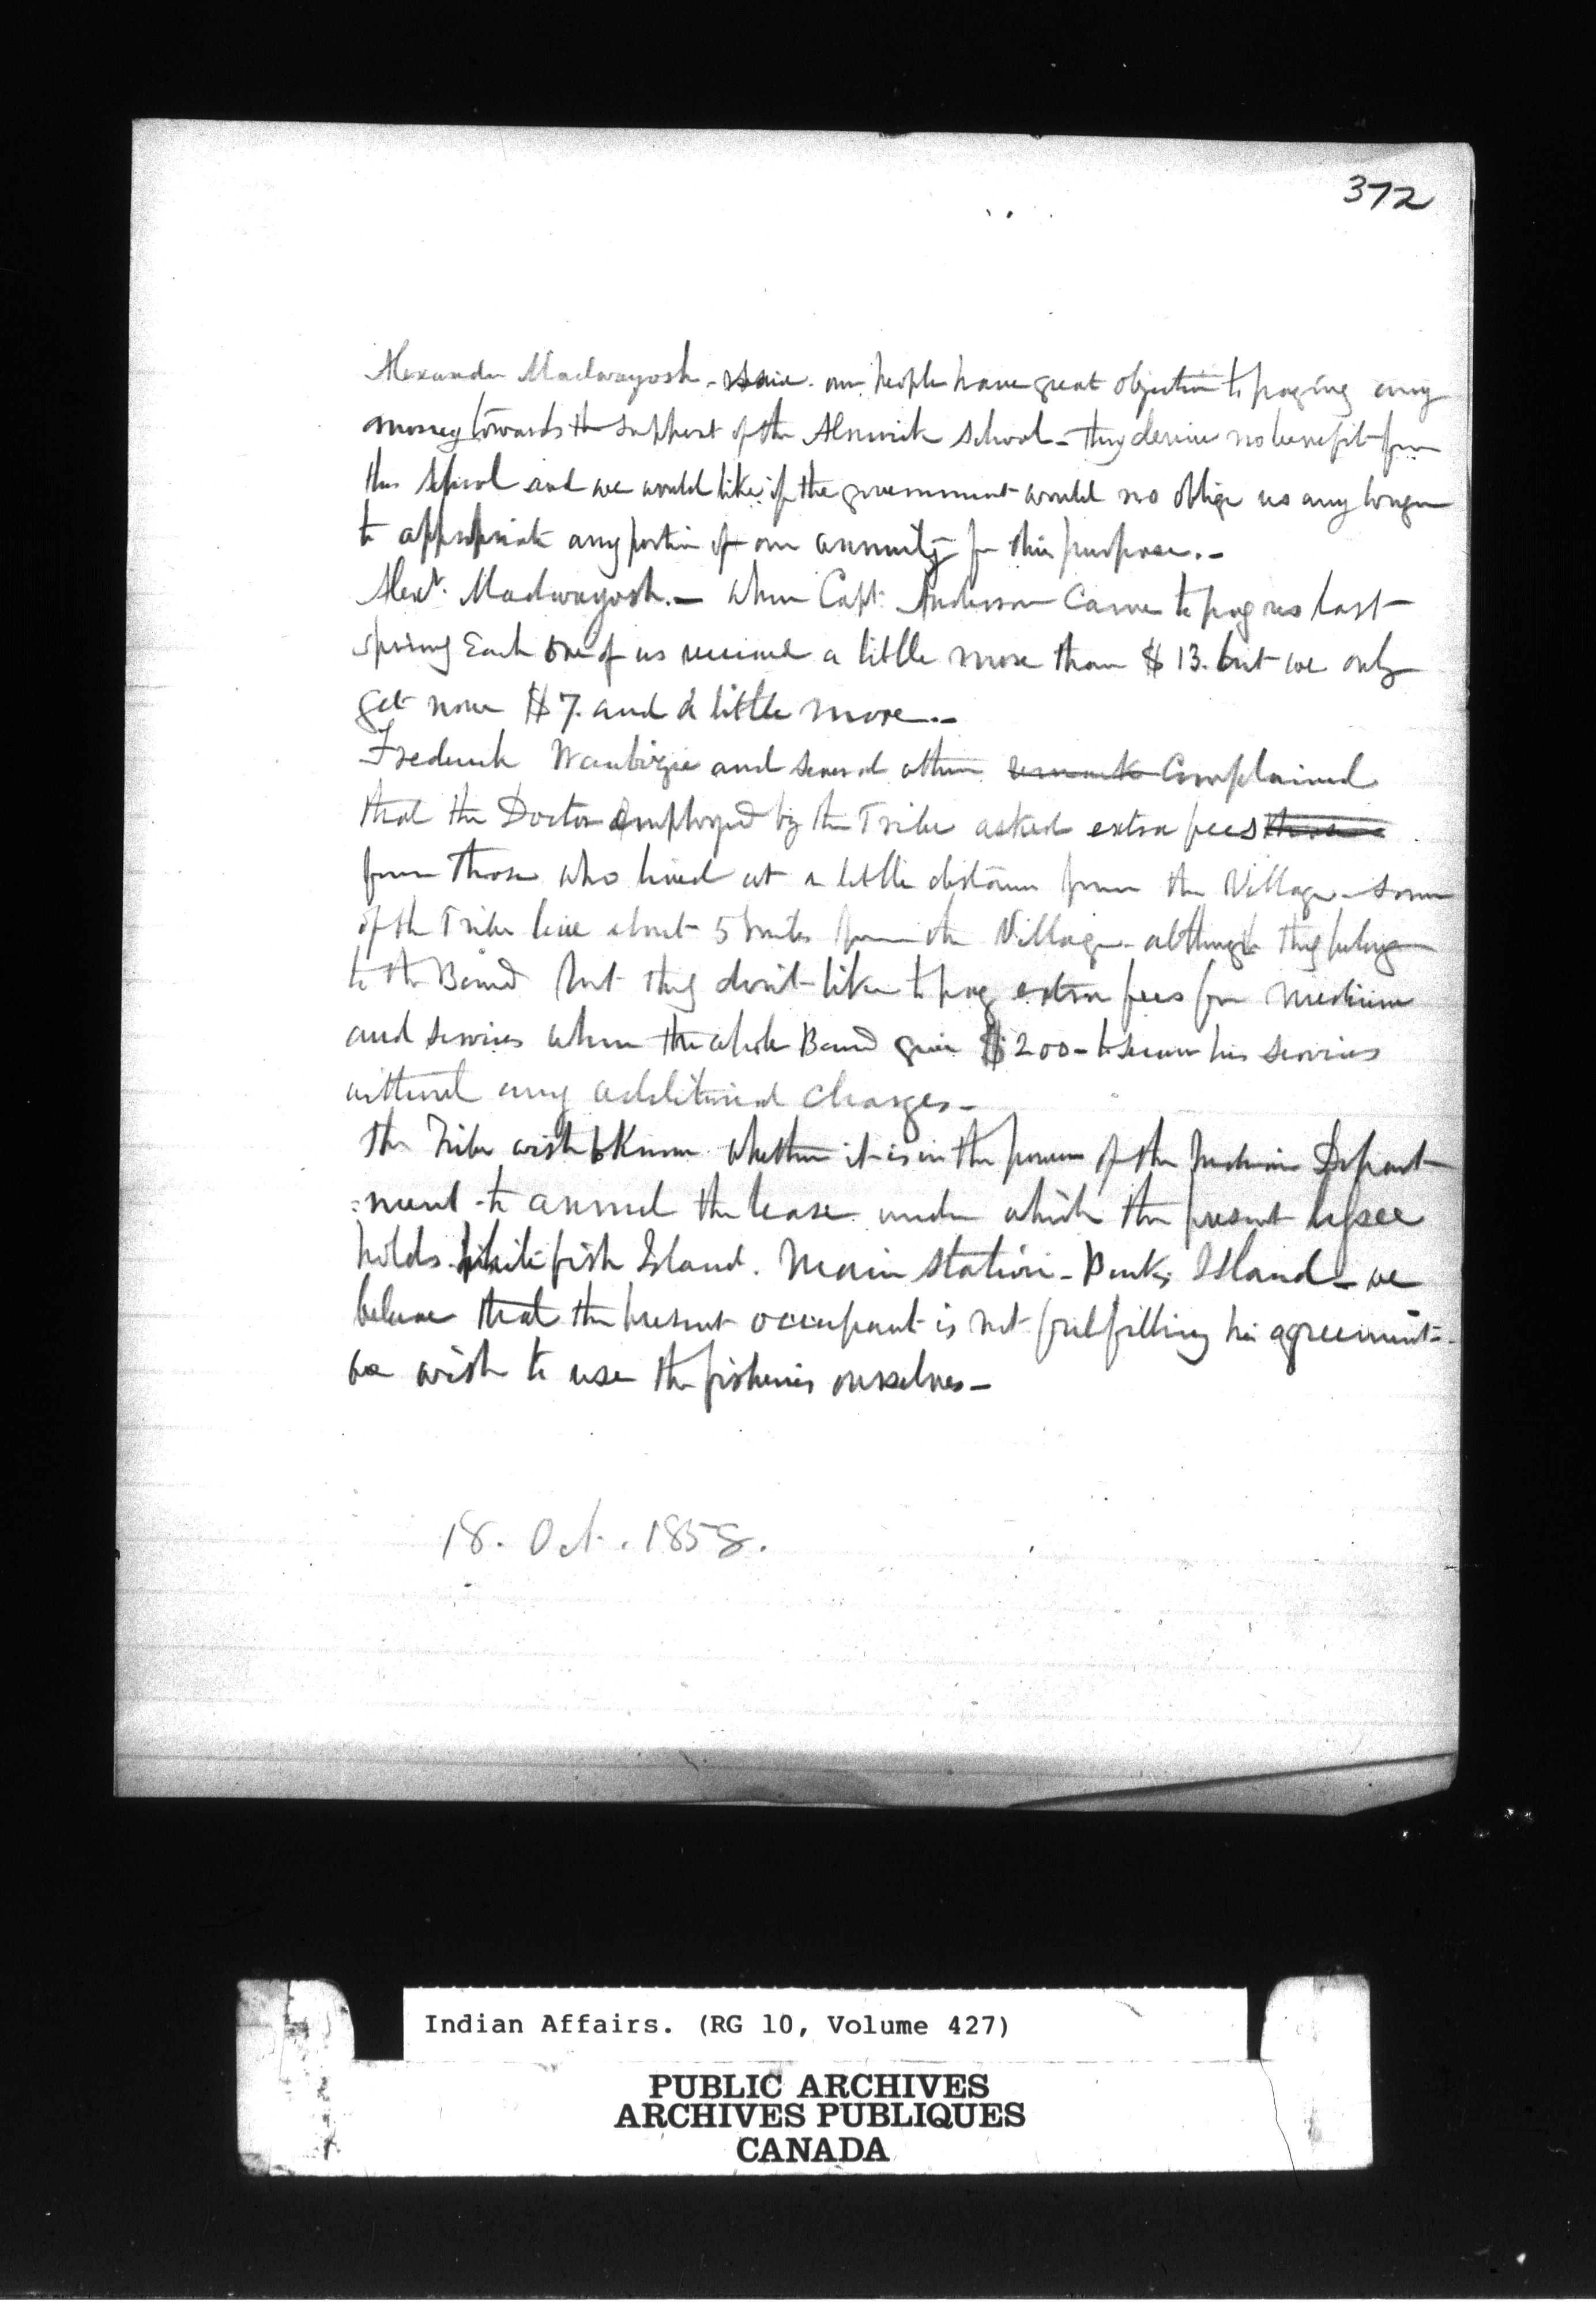 372
Alexander Madwayosh - said - our people have great objection to paying any
money towards the support of the Alnwick School - they derive no benefit from
this School and we would like if the government would no oblige us any longer
to appropriate any portion of our annuity for this purpose. -
Alexr. Madwayosh. - When Capt. Anderson Came to pay us last
spring Each one of us received a little more than $13. but we only
get now $7. and a little more. -
Frederick Waubizie and several others remark Complained
that the Doctor Employed by the Tribe asked extra fees
from those who lived at a little distance from the Village - some
of the Tribe live about 5 miles from the Village - although they belong
to the Band but they don't like to pay extra fees for medicine
and services when the whole Band give $200 - to secure his services
without any additional charges -
The Tribe wish to Know whether it is in the power of the Indian Depart
:ment - to annul the lease under which the present lessee
holds White fish Island. Main station - Island - we
believe that the present occupant is not fulfilling his agreement -
we wish to use the fisheries ourselves -
18. Oct. 1858.
Indian Affairs. (RG 10, Volume 427)
PUBLIC ARCHIVES
ARCHIVES PUBLIQUES
CANADA